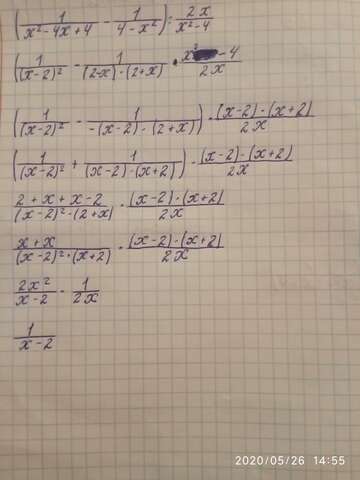 (1/(x²-4x+4) - 1/(4-x²)) : 2x/(x²-4)
(1/(x-2)² - 1/((2-x)·(2+x)) · (x²-4)/2x
(1/(x-2)² - 1/(-(x-2)·(2+x))) · ((x-2)·(x+2))/2x
(1/(x-2)² + 1/((x-2)·(x+2))) · ((x-2)·(x+2))/2x
(2+x+x-2)/((x-2)²·(2+x)) · ((x-2)·(x+2))/2x
(x+x)/((x-2)²·(x+2)) · ((x-2)·(x+2))/2x
2x²/(x-2) · 1/2x
1/(x-2)
2020/05/26 14:55